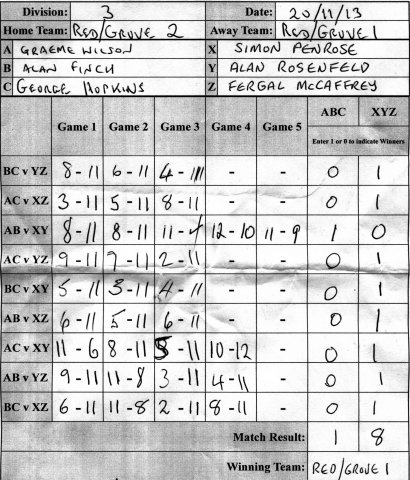 Division: 3 Date: 20/11/13
Home Team: RED/GROVE 2 Away Team: RED/GROVE 1
A GRAEME WILSON X SIMON PENROSE
B ALAN FINCH Y ALAN ROSENFELD
C GEORGE HOPKINS Z FERGAL McCAFFREY
Game 1 Game 2 Game 3 Game 4 Game 5 ABC XYZ
Enter 1 or 0 to indicate Winners
BC v YZ 8-11 6-11 4-11 - - 0 1
AC v XZ 3-11 5-11 8-11 - - 0 1
AB v XY 8-11 8-11 11-4 12-10 11-9 1 0
AC v YZ 9-11 7-11 2-11 - - 0 1
BC v XY 5-11 3-11 4-11 - - 0 1
AB v XZ 6-11 5-11 6-11 - - 0 1
AC v XY 11-6 8-11 5-11 10-12 - 0 1
AB v YZ 9-11 11-8 3-11 4-11 - 0 1
BC v XZ 6-11 11-8 2-11 8-11 - 0 1
Match Result: 1 8
Winning Team: RED/GROVE 1